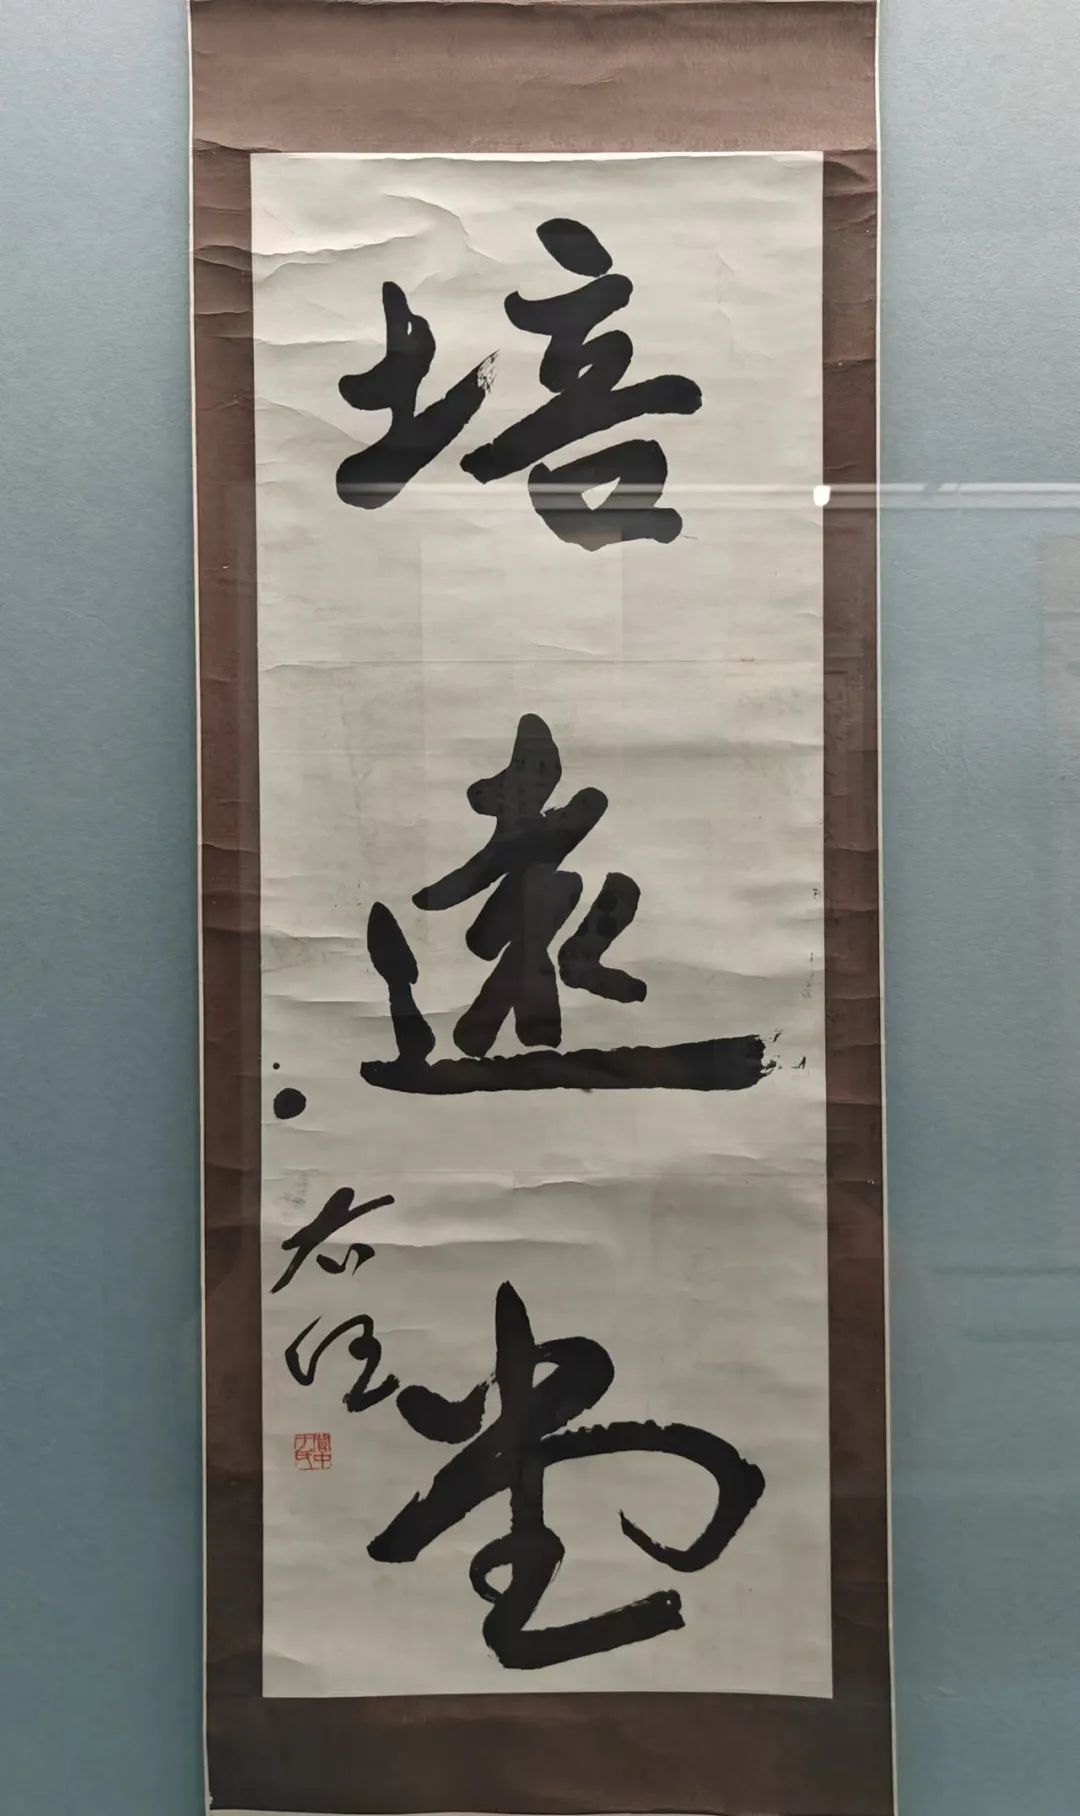 培遠堂
右任
關中于氏